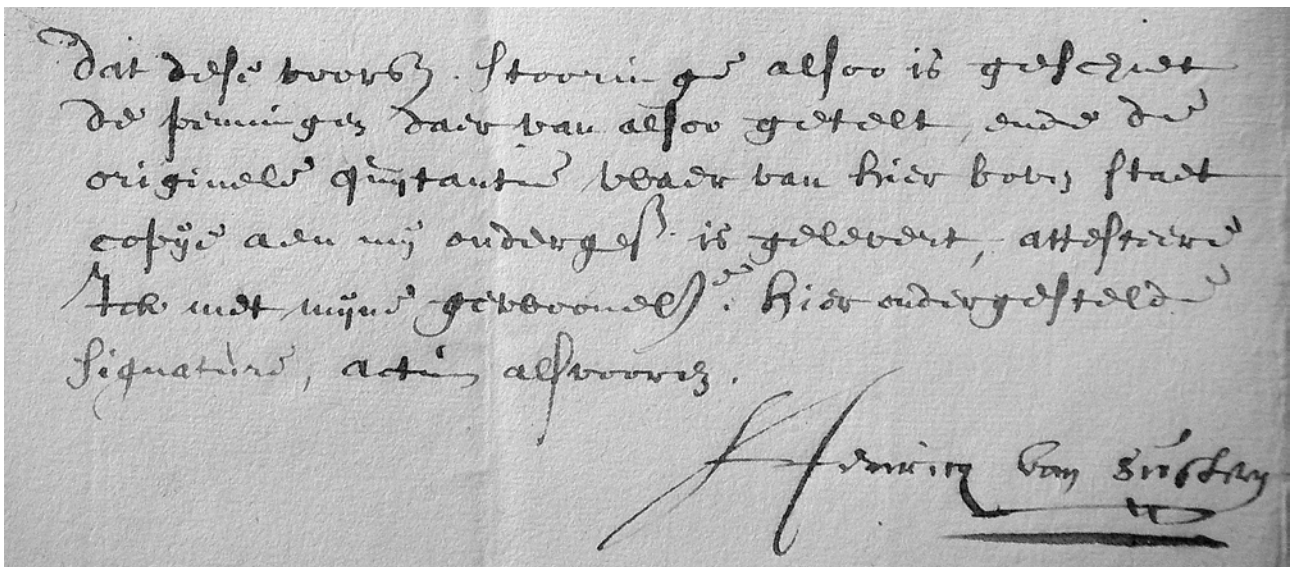 dat dese voors. stooringe alsoo is geschiet
de penningen daer van alsoo getelt, ende de
originele quijtantie waer van hier boven staet
copije aen mij onderges. is gelevert, attesteere
Ick met mijne gewoonel. hier ondergestelde
signature, actum alsvooren.
Henrick van